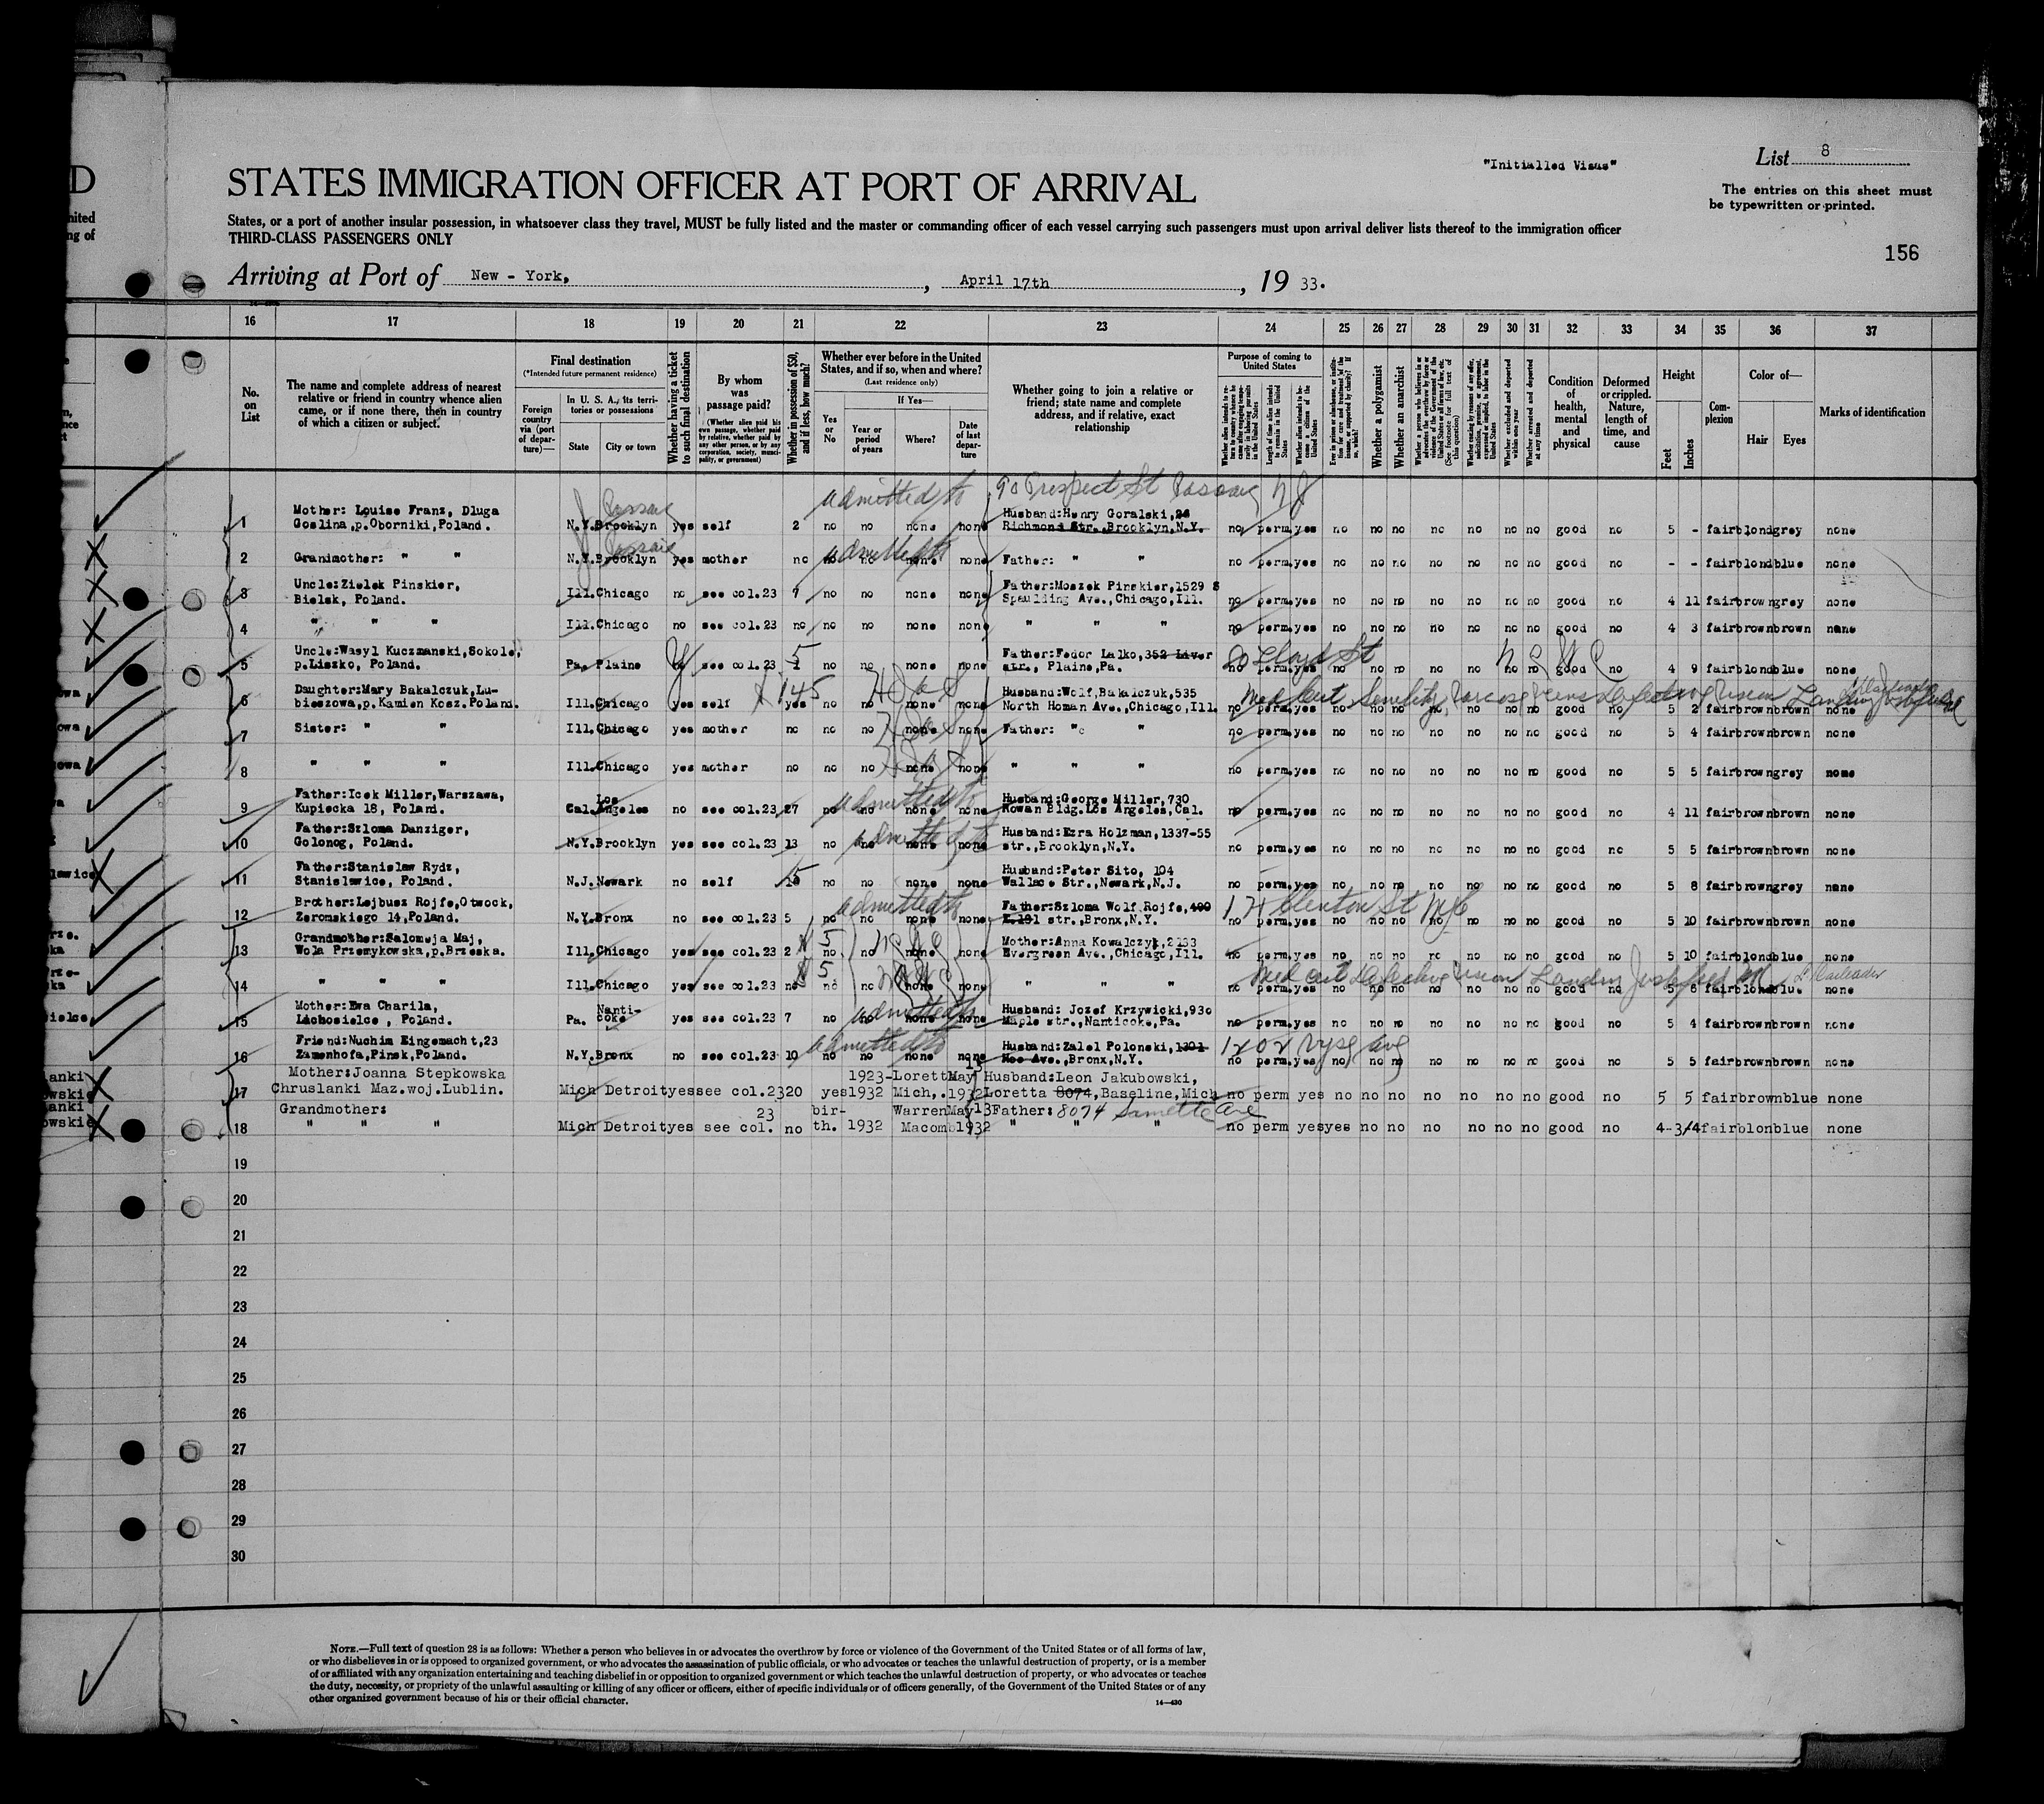 D
nited
ng of
"Initialled Visas"
List 8
STATES IMMIGRATION OFFICER AT PORT OF ARRIVAL
The entries on this sheet must
be typewritten or printed.
States, or a port of another insular possession, in whatsoever class they travel, MUST be fully listed and the master or commanding officer of each vessel carrying such passengers must upon arrival deliver lists thereof to the immigration officer
THIRD-CLASS PASSENGERS ONLY
156
Arriving at Port of New - York, , April 17th , 19 33.
16 17 18 19 20 21 22 23 24 25 26 27 28 29 30 31 32 33 34 35 36 37
No. on List
The name and complete address of nearest
relative or friend in country whence alien
came, or if none there, then in country
of which a citizen or subject.
Final destination
(*Intended future permanent residence)
Foreign country via (port of departure)—
In U. S. A., its territories or possessions
State City or town
Whether having a ticket to such final destination
By whom was passage paid?
(Whether alien paid his own passage, whether paid by relative, whether paid by any other person, or by any corporation, society, municipality, or government)
Whether in possession of $50, and if less, how much?
Whether ever before in the United
States, and if so, when and where?
(Last residence only)
If Yes—
Yes or No
Year or period of years
Where?
Date of last departure
Whether going to join a relative or
friend; state name and complete
address, and if relative, exact
relationship
Purpose of coming to
United States
Whether a polygamist
Whether an anarchist
Condition of health, mental and physical
Deformed or crippled. Nature, length of time, and cause
Height
Feet Inches
Complexion
Color of—
Hair Eyes
Marks of identification
admitted to 90 Prospect St Passaic NJ
1 Mother: Louise Franz, Dluga
Goslina,p.Oborniki,Poland. N.Y. Brooklyn Passaic yes self 2 no no none none Husband:Henry Goralski,26
Richmond Str.,Brooklyn,N.Y. no perm.yes no no no no no no no good no 5 - fair blond grey none
admitted to
2 Grandmother: " " N.Y. Brooklyn Passaic yes mother no no no none none Father: " " no perm.yes no no no no no no no good no - - fair blond blue none
3 Uncle:Zielek Pinskier,
Bielsk, Poland. Ill. Chicago no see col.23 7 no no none none Father:Moszek Pinskier,1529 S
Spaulding Ave.,Chicago,Ill. no perm.yes no no no no no no no good no 4 11 fair brown grey none
4 " " " Ill. Chicago no see col.23 no no no none none " " " no perm.yes no no no no no no no good no 4 3 fair brown brown none
5 Uncle:Wasyl Kuczmanski,Sokole,
p.Liszko, Poland. Pa. Plaine see col.23 5 no no none none Father:Fedor Lalko,352 Liver
str., Plaine,Pa. 20 Lloyd St no perm.yes no no no no no no no good no 4 9 fair blond blue none
6 Daughter:Mary Bakalczuk,Lu-
bieszowa,p.Kamien Kosz.Poland. Ill. Chicago yes self yes $145 no no none none Husband:Wolf,Bakalczuk,535
North Homan Ave.,Chicago,Ill. no perm.yes no no no no no no no good no 5 2 fair brown brown none
Med Cert Senility, Varicose veins Defective Vision Landing Justified
7 Sister: " " Ill. Chicago yes mother no no no none none Father: " " no perm.yes no no no no no no no good no 5 4 fair brown brown none
8 " " " Ill. Chicago yes mother no no no none none " " " no perm.yes no no no no no no no good no 5 5 fair brown grey none
admitted to
9 Father:Icek Miller,Warszawa,
Kupiecka 18, Poland. Cal. Los Angeles no see col.23 27 no no none none Husband:George Miller,730
Rowan Bldg.Los Angeles,Cal. no perm.yes no no no no no no no good no 4 11 fair brown brown none
admitted to
10 Father:Szloma Danziger,
Golonog, Poland. N.Y. Brooklyn yes see col.23 13 no no none none Husband:Ezra Holzman,1337-55
str.,Brooklyn,N.Y. no perm.yes no no no no no no no good no 5 5 fair brown brown none
11 Father:Stanislaw Rydz,
Stanislawice, Poland. N.J. Newark no self 15 no no none none Husband:Peter Sito, 104
Wallace Str.,Newark,N.J. no perm.yes no no no no no no no good no 5 8 fair brown grey none
admitted to
12 Brother:Lejbusz Rojfe,Otwock,
Zeromskiego 14,Poland. N.Y. Bronx no see col.23 5 no no none none Father:Szloma Wolf Rojfe,400
E.181 str.,Bronx,N.Y. 171 Clenton St NYC no perm.yes no no no no no no no good no 5 10 fair brown brown none
13 Grandmother:Salomeja Maj,
Wola Przemykowska,p.Brzeska. Ill. Chicago yes see col.23 2 $5 no no none none Mother:Anna Kowalczyk,2133
Evergreen Ave.,Chicago,Ill. no perm.yes no no no no no no no good no 5 10 fair blond blue none
14 " " " Ill. Chicago yes see col.23 no $5 no no none none " " " no perm.yes no no no no no no no good no 5 6 fair blond blue none
Med Cert Defective Vision Landing Justified
admitted to
15 Mother:Ewa Charila,
Lachosielce, Poland. Pa. Nanti-
coke yes see col.23 7 no no none none Husband: Jozef Krzywicki,930
Maple str.,Nanticoke,Pa. no perm.yes no no no no no no no good no 5 4 fair brown brown none
admitted to
16 Friend:Nuchim Eingemacht,23
Zamenhofa,Pinsk,Poland. N.Y. Bronx no see col.23 10 no no none none Husband:Zalel Polonski,1301
Hoe Ave.,Bronx,N.Y. 1202 Vyse Ave no perm.yes no no no no no no no good no 5 5 fair brown brown none
17 Mother:Joanna Stepkowska
Chruslanki Maz.woj.Lublin. Mich Detroit yes see col.23 20 yes 1923-
1932 Loretta
Mich,. May 13
1932 Husband:Leon Jakubowski,
Loretta 8074,Baseline,Mich no perm yes no no no no no no no good no 5 5 fair brown blue none
18 Grandmother:
" " " Mich Detroit yes see col. 23 no bir-
th. 1932 Warren
Macomb May 13
1932 Father: 8074 Ave
" " " no perm yes yes no no no no no no good no 4-3/4 fair blon blue none
19
20
21
22
23
24
25
26
27
28
29
30
NOTE.—Full text of question 28 is as follows: Whether a person who believes in or advocates the overthrow by force or violence of the Government of the United States or of all forms of law,
or who disbelieves in or is opposed to organized government, or who advocates the assassination of public officials, or who advocates or teaches the unlawful destruction of property, or is a member
of or affiliated with any organization entertaining and teaching disbelief in or opposition to organized government or which teaches the unlawful destruction of property, or who advocates or teaches
the duty, necessity, or propriety of the unlawful assaulting or killing of any officer or officers, either of specific individuals or of officers generally, of the Government of the United States or of any
other organized government because of his or their official character.
14—430